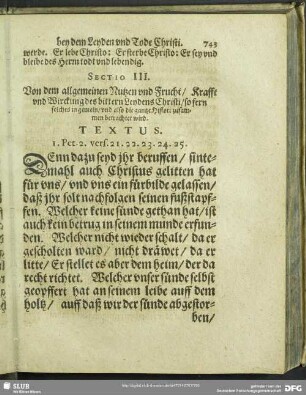 bey dem Leyden vnd Tode Christi. 743
werde. Er lebe Christo: Er sterbe Christo: Er sey vnd
bleibe des Herrn todt vnd lebendig.
SECTIO III.
Von dem allgemeinen Nutzen vnd Frucht/ Krafft
vnd Wirckung des bittern Leydens Christi/ so fern
solches in gemein/ vnd also die gantze Histori zusam-
men betrachtet wird.
TEXTUS.
1. Pet. 2. vers. 21. 22. 23. 24. 25.
DEnn dazu seyd jhr beruffen/ sinte-
mahl auch Christus gelitten hat
für vns/ vnd vns ein fürbilde gelassen/
daß jhr solt nachfolgen seinen fußstapf-
fen. Welcher keine sünde gethan hat/ ist
auch kein betrug in seinem munde erfun-
den. Welcher nicht wieder schalt/ da er
gescholten ward/ nicht dräwet/ da er
litte/ Er stellet es aber dem heim/ der da
recht richtet. Welcher vnser sünde selbst
geopffert hat an seinem leibe auff dem
holtz/ auff daß wir der sünde abgestor-
ben/
SLUB
Wir führen Wissen.
DFG